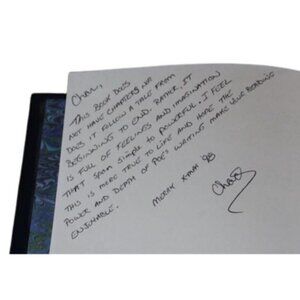 Char,
This book does
not have chapters, nor
does it follow a tale from
beginning to end. Rather, it
is full of feelings and imagination
that span simple to powerful. I feel
this is more true to life and hope the
power and depth of Poe's writing make your reading
enjoyable.
Merry X-mas 98